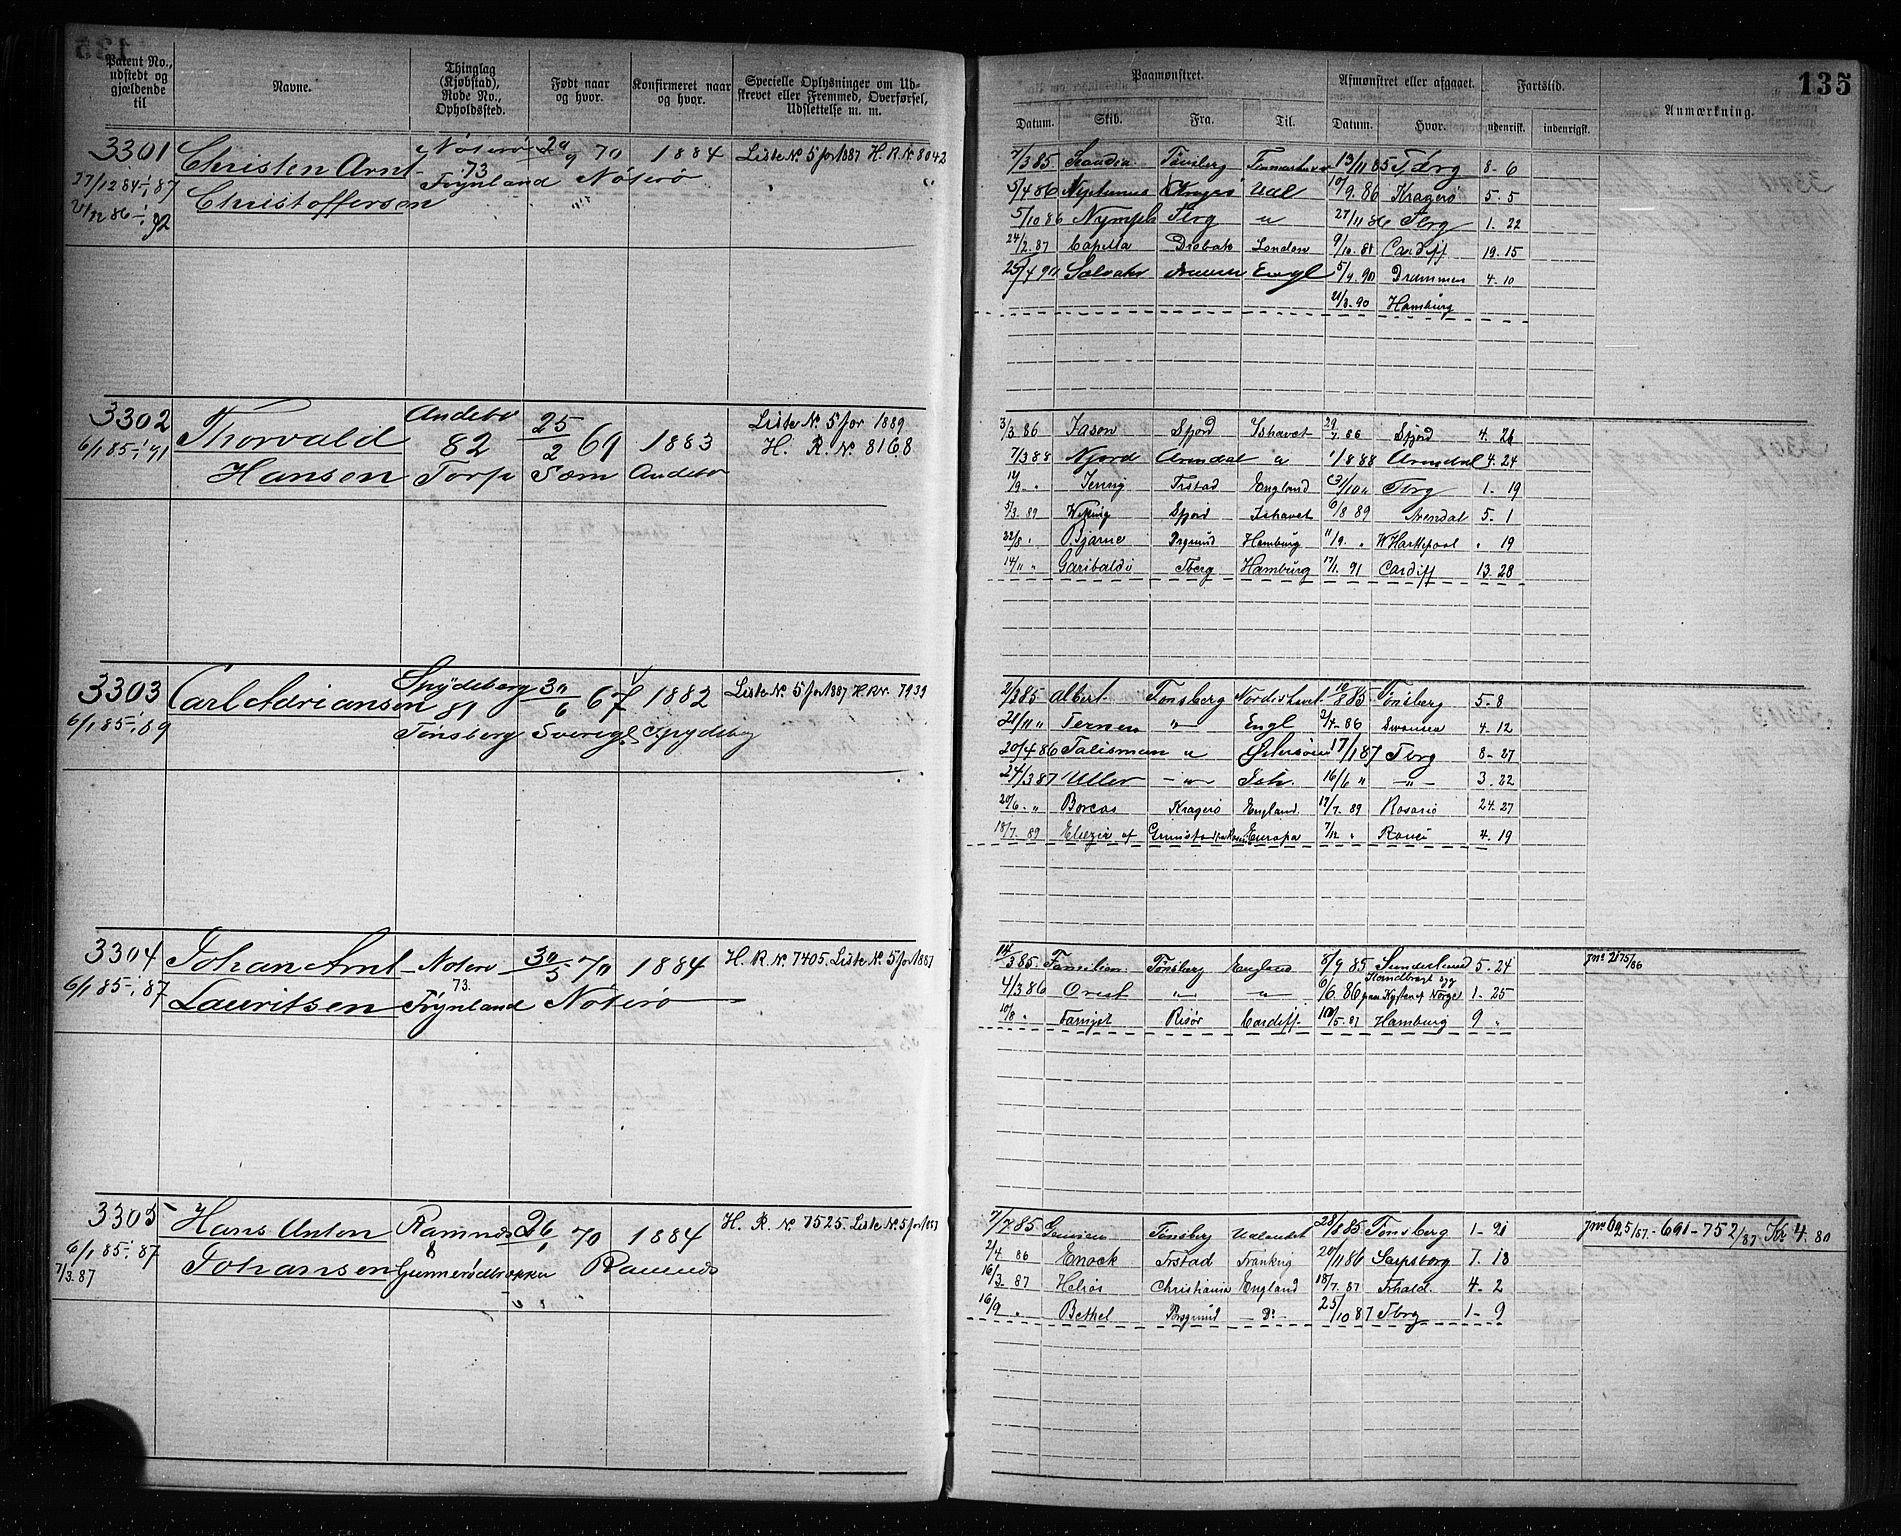 135
Patent No., udstedt og gjældende til
Navne.
Thinglag (Kjøbstad), Rode No., Opholdssted.
Født naar og hvor.
Konfirmeret naar og hvor.
Specielle Oplysninger om Udskrevet eller Fremmed, Overførsel, Udslettelse m. m.
Paamønstret.
Afmønstret eller afgaaet.
Fartstid.
Anmærkning.
Datum. Skib. Fra. Til. Datum. Hvor. udenrisk. indenrigsk.
3301 Christen Arnt Nøterø 29/9 70 1884 Liste No 5 for 1887 H. R. No 8042
27/12 84 - 1/1 87 Christoffersen 73 Føynland Nøterø
86 - 1/1 92
7/3 85 Scandia Tønsberg 13/11 85 Tbrg 8-6
5/4 86 Neptunus Kragerø Udl 10/9. 86 Kragerø 5-5
5/10 86 Nymph Tbrg " 27/11 86 Tbrg 1. 22
24/2. 87 Capella Drøbak London 9/10. 88 Cardiff 19. 15
25/4 90 Drammen Engl 5/9. 90 Drammen 4-10
21/3. 90 Hamburg
3302 Thorvald Andebo 25/2 69 1883 Liste No 5 for 1889
6/1 85 - 1/1 91 Hansen 82 Torp Sæm Andebo H. R. No 8168
3/3 86 Jason Sfjord Ishavet 29/7. 86 Sfjord 4. 26
7/3 88 Njord Arendal " 1/8 88 Arendal 4. 24
14/9 " Jenny Frstad England 31/10 " Tbrg 1- 19
5/3. 89 Viking Sfjord Ishavet 6/8 89 Arendal 5-1
22/8 " Bjarne Prsgrund Hamburg 11/9. " W Hartlepool " 19
14/11 " Garibaldi Tberg Hamburg 17/1. 91 Cardiff 13. 28
3303 Carl Adriansen Spydeberg 30/6 67 1882 Liste No 5 for 1887 H. R. Nr. 7939
6/1 85 - 1/1 89 81 Tønsberg Sverige Spydeberg
2/3 85 Albert Tønsberg Nordishavet 16/8 85 Tønsberg 5-8
21/11 " Ternen " Engl 2/4- 86 Swansea 4-12
20/4 86 Talisman " Østersøen 17/1 87 Tbrg 8-27
24/3 87 Uller -"- Ish. 16/6 " -"- 3. 22
20/6. " Boreas Kragerø England. 17/7. 89 Rosario 24. 27
18/7. 89 Eliezer af Grimstad Europa 7/12 " Rouen 4. 19
3304 Johan Arnt Noterø 30/5 70 1884 H. R. No 7405. Liste No 5 for 1887
6/1 85 - 1/1 87 Lauritsen 73. Føynland Nøterø
14/3 85 Familien Tønsberg England 8/9. 85 Sunderland 5-24 Jnr 2175/86
4/3 86 Orest " " 6/6. 86 Kondbragt og paa Kysten af Norge 1-25
10/8 " Farvigst Risør Cardiff- 10/5. 87 Hamburg 9 "
3305 Hans Anton Ramnæs 26/1 70 1884 H. R. No 7525. Liste No 5 for 1887
6/1 85 - 1/1 87 Johansen 8 Ramnæs
7/3. 87
7/7 85 Tønsberg Udlandet 28/8 85 Tønsberg 1-21 Jnr 625/87.-691-752/87 Kr 4.80
2/4 86 Enock Frstad Frankrig 20/11 86 Sarpsborg 7. 18
16/3. 87 Helios Christiania England 18/7. 87 Frhald. 4-2
16/9 " Bethel Porsgrund - Do - 25/10 87 Tbrg 1-9